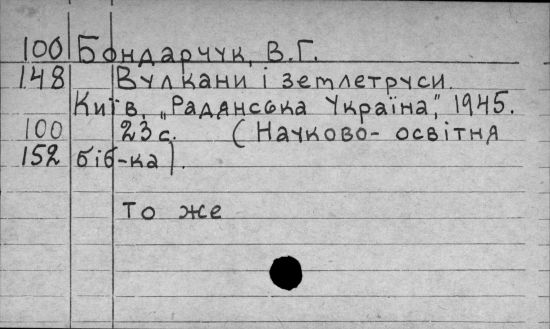 100 Бондарчук, В.Г.
148 Вулкани і землетруси.
Київ, „Радянська Україна", 1945.
100 23 с. (Науково- освітня
152 біб-ка).
То же